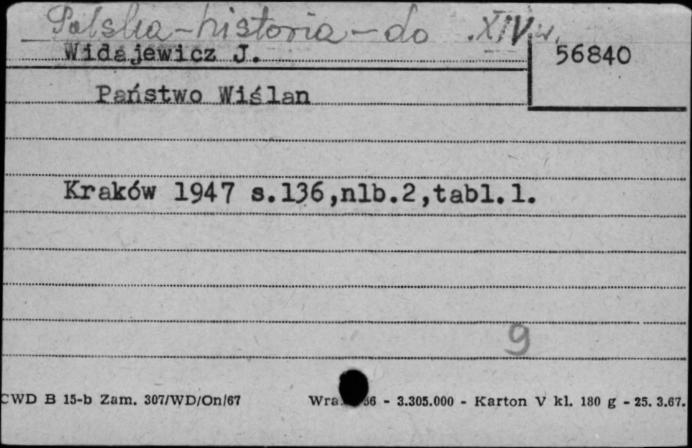 Polska - historia - do XIV w.
Widajewicz J.
56840
Państwo Wiślan
Kraków 1947 s.136,nlb.2,tabl.1.
9
CWD B 15-b Zam. 307/WD/On/67
- 3.305.000 - Karton V kl. 180 g - 25. 3.67.